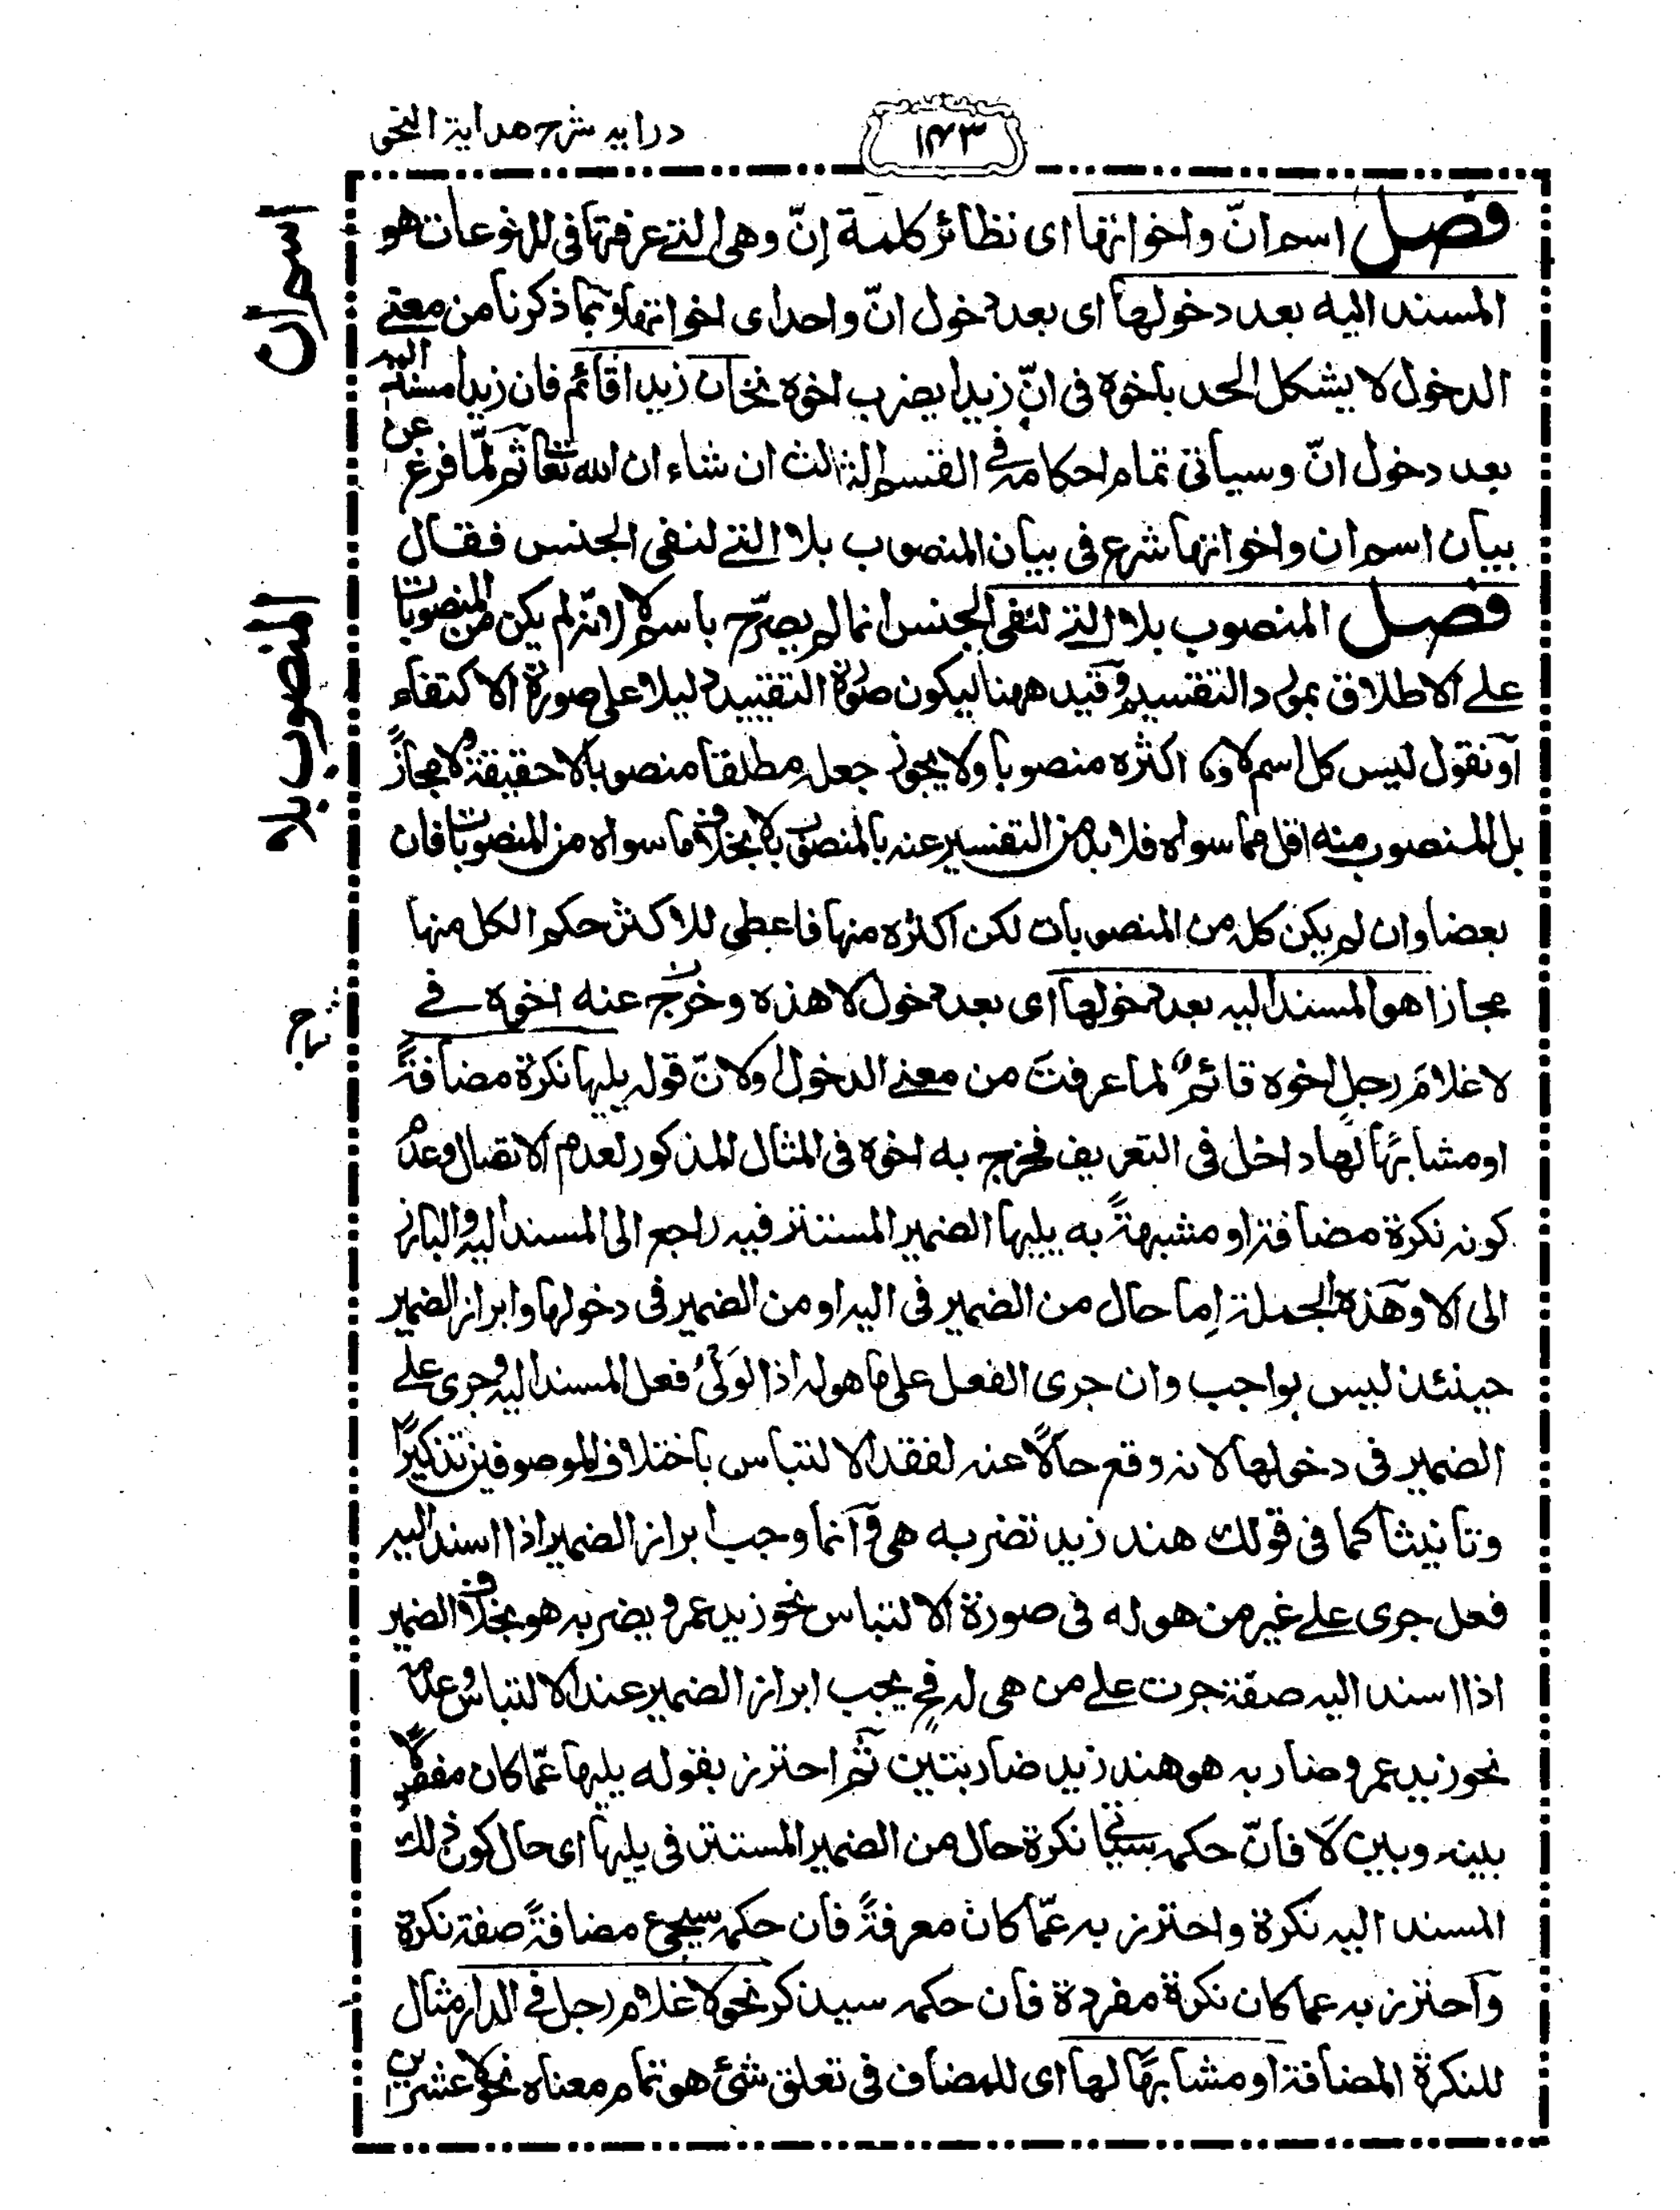 درايه شرح هداية النحو
۱۴۳
فصل اسم انّ واخواتها اى نظائر كلمة اِنّ وهى التى عرفتها فى المرفوعات هو
المسند اليه بعد دخولها اى بعد دخول انّ واحداى اخواتها وبما ذكرنا من معنى
الدخول لا يشكل الحد باخوه فى انّ زيدا يضرب اخوه نحو ان زيدا قائم فان زيدا مسند اليه
بعد دخول انّ وسياتى تمام احكامه فى القسم الثالث ان شاء ان الله تعا ثم لمّا فرغ عن
بيان اسم ان واخواتها شرع فى بيان المنصوب بلا التى لنفى الجنس فقال
فصل المنصوب بلا التى لنفى الجنس انما لم يصرّح باسم لا لانه لم يكن من المنصوبات
على الاطلاق وقيد ههنا ليكون صورة التقييد دليلا على صورة الاكتفاء
آو نقول ليس كل اسم لا ولا اكثره منصوبا ولا يجوز جعل مطلقا منصوبا لا حقيقة ولا مجازًا
بل المنصوب منه اقل مما سواه فلا بد من التفسير عنه بالمنصوب بلا بخلاف ما سواه من المنصوبات فان
بعضا وان لم يكن كله من المنصوبات لكن اكثره منها فاعطى للاكثر حكم الكل منها
مجازا هو المسند اليه بعد دخولها اى بعد دخول لا هذه وخرج عنه اخوه فى
لا غلامَ رجلٍ اخوه قائمٌ لما عرفت من معنى الدخول اولانّ قوله يليها نكرة مضافةً
او مشابهًا لها داخل فى التعريف فخرج به اخوه فى المثال المذكور لعدم الاتصال وعدم
كونه نكرة مضافة او مشبهةً به يليها الضمير المستتر فيه راجع الى المسند اليه والبارز
الى لا وهذه الجملة اِما حال من الضمير فى اليه او من الضمير فى دخولها وابراز الضمير
حينئذ ليس بواجب وان جرى الفعل على ما هو له اذا لوَلْىُ فعل المسند اليه وجرى على
الضمير فى دخولها لانه وقع حالًا عنه لفقد الالتباس باختلاف الموصوفين تذكيرًا
وتانيثا كما فى قولك هند زيد تضربه هى وآنما وجب ابراز الضمير اذا اسند اليه
فعل جرى على غير من هو له فى صورة الالتباس نحو زيد عمرو يضربه هو بخلاف الضمير
اذا اسند اليه صفة جرت على من هى له فح يجب ابراز الضمير عند الالتباس وعدمه
نحو زيد عمرو ضاربه هو هند زيد ضاربته ثم احترز بقوله يليها عمّا كان مفصولا
بينه وبين لا فانّ حكمه سيجئ نكرة حال من الضمير المستتر فى يليها اى حال كون ذلك
المسند اليه نكرة واحترز به عمّا كان معرفةً فان حكمه سيجئ مضافةً صفة نكرة
وآحترز به عما كان نكرة مفردة فان حكمه سيذكر نحو لا غلام رجل فى الدار مثال
للنكرة المضافة او مشابهًا لها اى للمضاف فى تعلق شئ هو تمام معناه نحو لا عشرين
اسم ان
المنصوب بلا